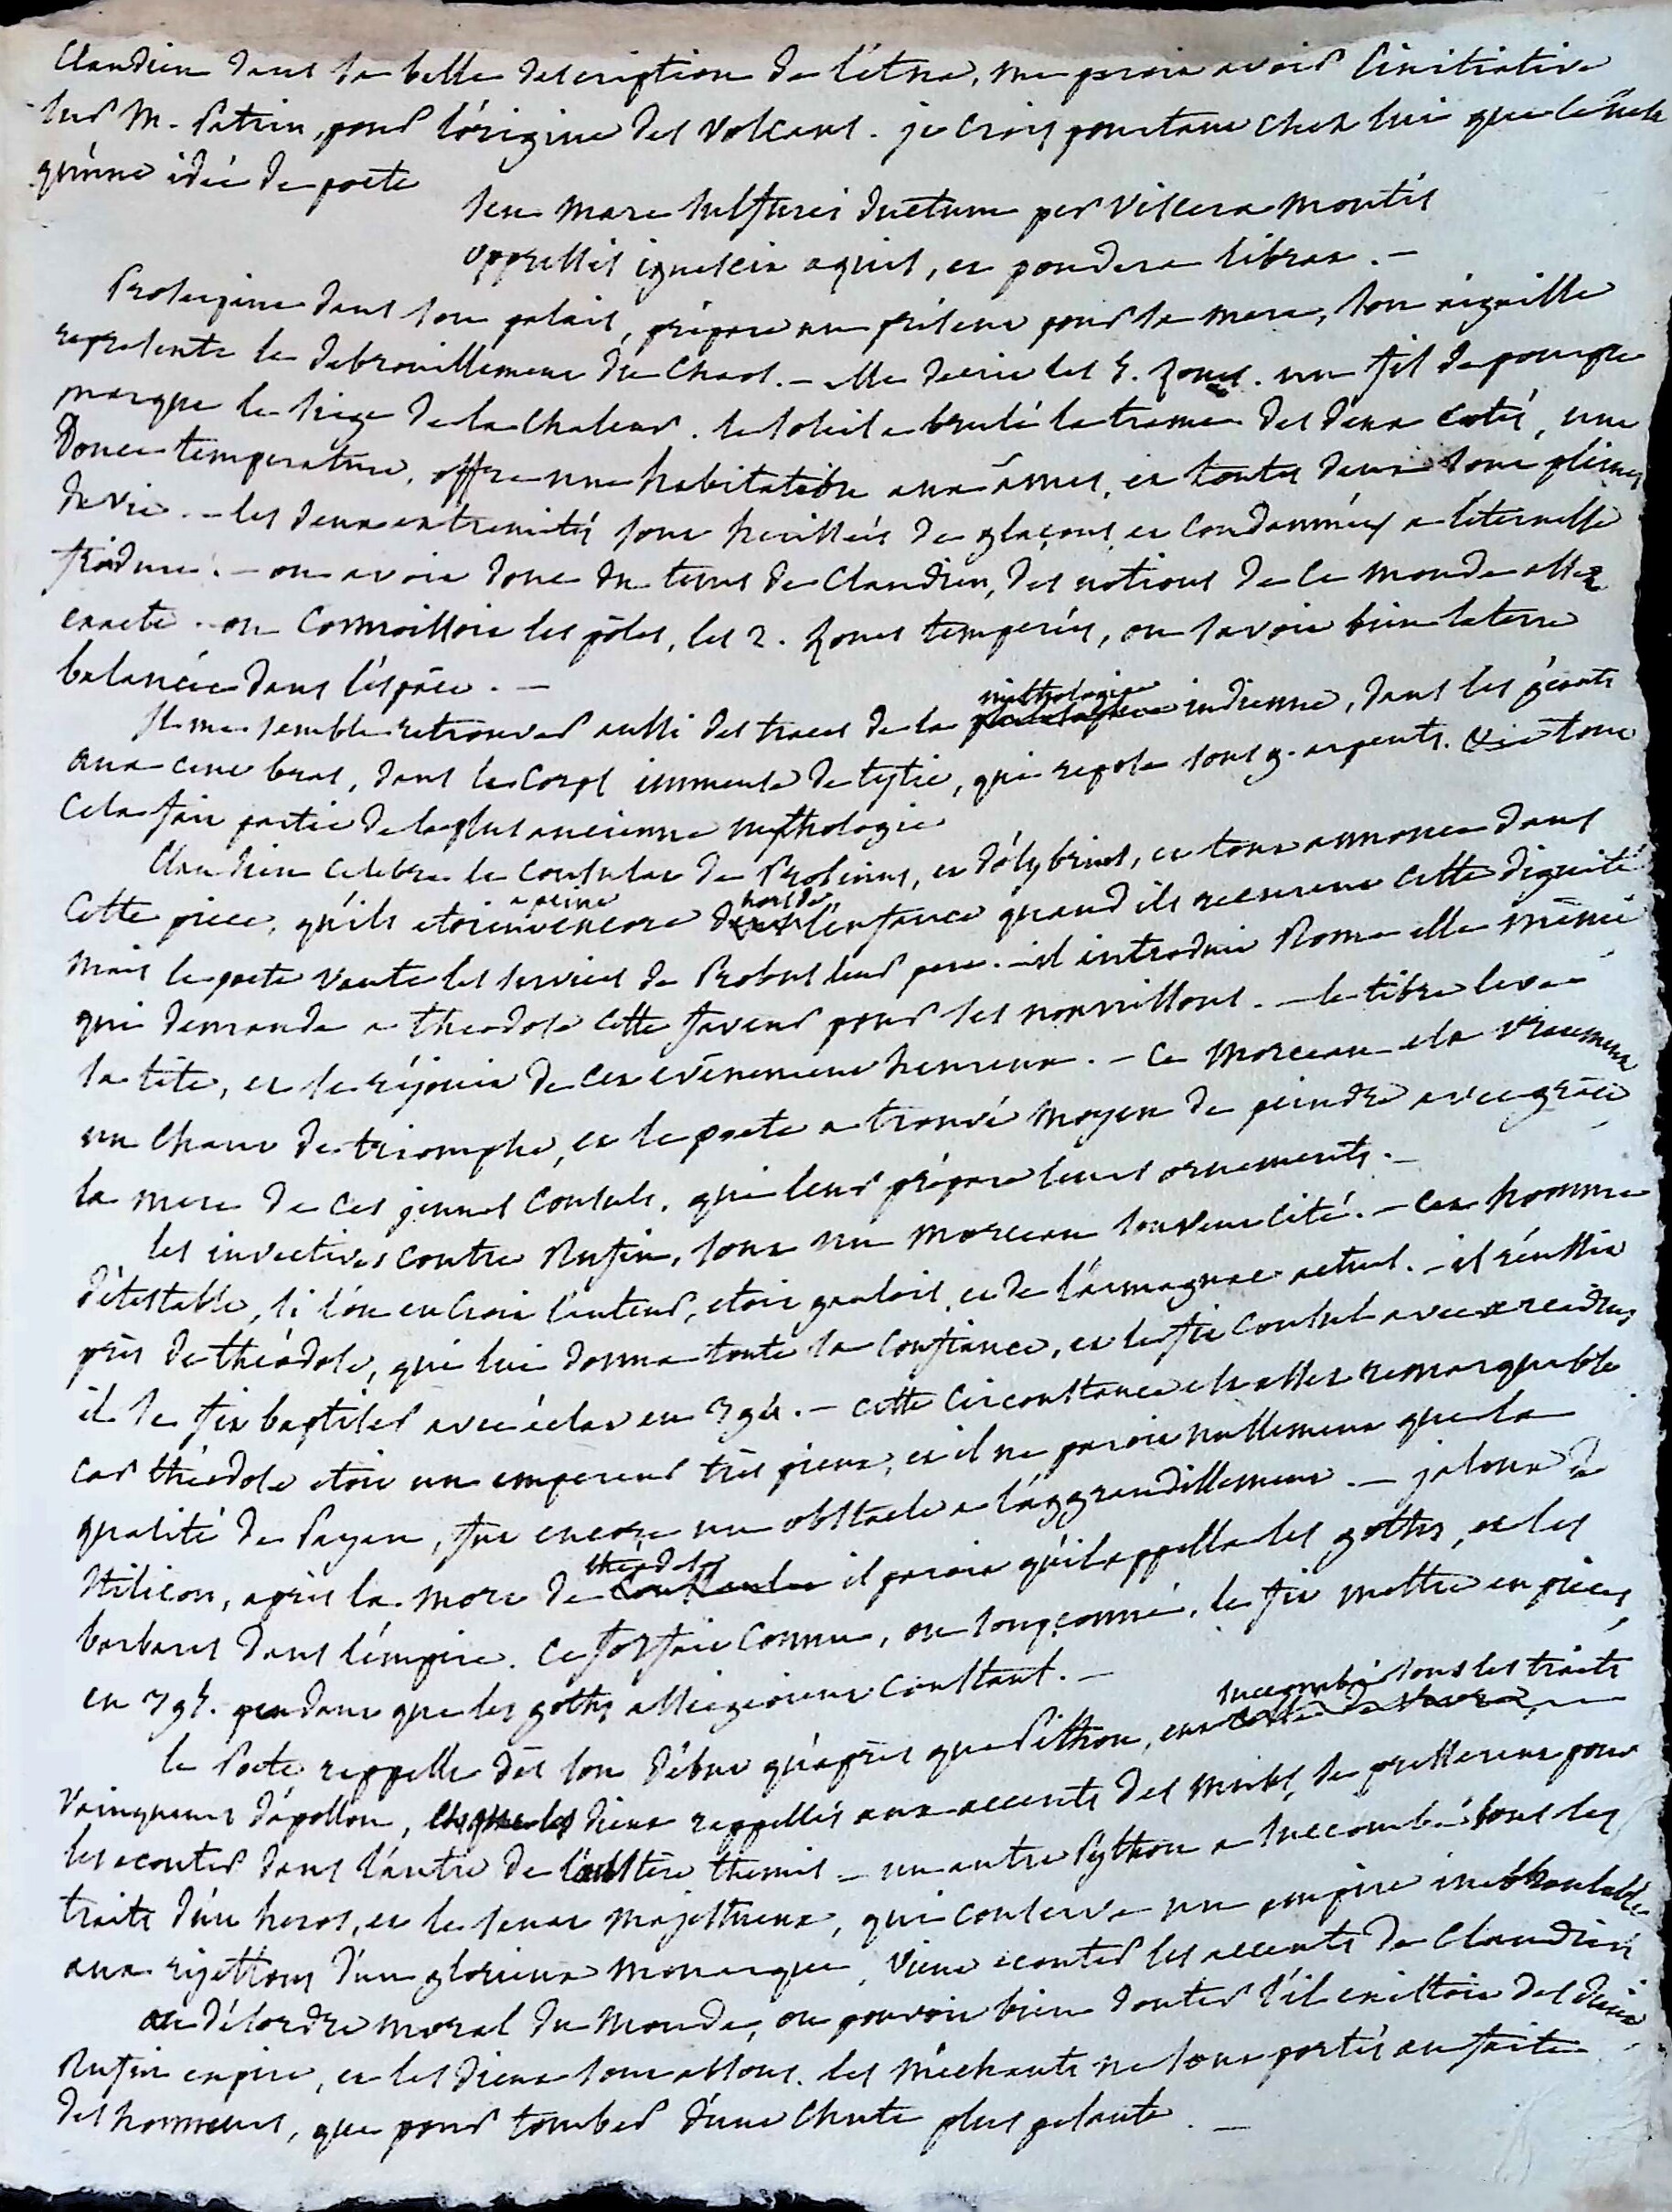 Claudien dans sa belle description de l'etna, me paroit avoir l'initiative
sur M. Patrin, pour l'origine des volcans. je crois pourtant chez lui que ce n'est
qu'une idée de poete
seu mare sulfurei ductum per viscera montis
oppressis ignescit aquis, et pondera librat. —
Proserpine dans son palais, prépare un présent pour sa mere, son aiguille
represente le debrouillement du chaos. — elle decrit les 5. zones. un fil de pourpre
marque le siege de la chaleur. le soleil a brulé la trame des deux cotés, une
douce temperature, offre une habitation aux ames, et toutes deux sont pleines
de vie. — les deux extremités sont herissées de glaçons et condamnées a l'éternelle
froidure. — on avoit donc du tems de Claudien, des notions de ce monde assez
exacte. on connoissoit les pôles, les 2. zones temperées, on savoit bien la terre
balancée dans l'éspace. —
Il me semble retrouver aussi des traces de la mithologie indienne, dans les géants
aux cent bras, dans le corps immense de tytie, qui repose sous 9. arpents. tout
cela fait partie de la plus ancienne mythologie
Claudien celebre le consulat de Probinus, et d'olybrius, et tout annonce dans
cette piece, qu'ils etoient a peine encore hors de l'enfance quand ils reçurent cette dignité
mais le poete vante les services de Probus leur pere. — il introduit Rome elle même
qui demande a theodose cette faveur pour ses nourrissons. — le tibre leve
sa tête, et se réjouit de cet evénement heureux. — ce morceau est vraiment
un chant de triomphe, et le poete a trouvé moyen de peindre avec grâce
la mere de ces jeunes consuls, qui leur prépare leurs ornements. —
les invectives contre Rufin, sont un morceau souvent cité. — cet homme
détestable, si l'on en croit l'auteur, etoit gaulois et de l'armagnac actuel. — il réussit
près de théodose, qui lui donna toute sa confiance, et le fit consul avec arcadius
il se fit baptiser avec éclat en 394. — cette circonstance est assez remarquable
car théodose etoit un empereur très pieux, et il ne paroit nullement que la
qualité de Payen, fut encore un obstacle a l'aggrandissement. — jaloux de
Stilicon, après la mort de theodose il paroit qu'il appella les goths, et les
barbares dans l'émpire. ce forfait connu, ou soupçonné, le fit mettre en pieces,
en 395. pendant que les goths assiegeoient Constant. —
le Poete, rappelle dès son début qu'après que Pithon, eut succombé sous les traits
vainqueurs d'apollon, les dieux rappellés aux accents des muses, se presserent pour
les ecouter dans l'antre de l'austère themis — un autre Python a succombé sous les
traits d'un heros, et le senat majestueux, qui conserve un empire inebranlable
aux rejettons d'un glorieux monarque, vient ecouter les accents de Claudien
au désordre moral du monde, on pouvoit bien douter s'il existoit des dieux
Rufin expire, et les dieux sont absous. les méchants ne sont portés au faite
des honneurs, que pour tomber d'une chute plus pesante. —